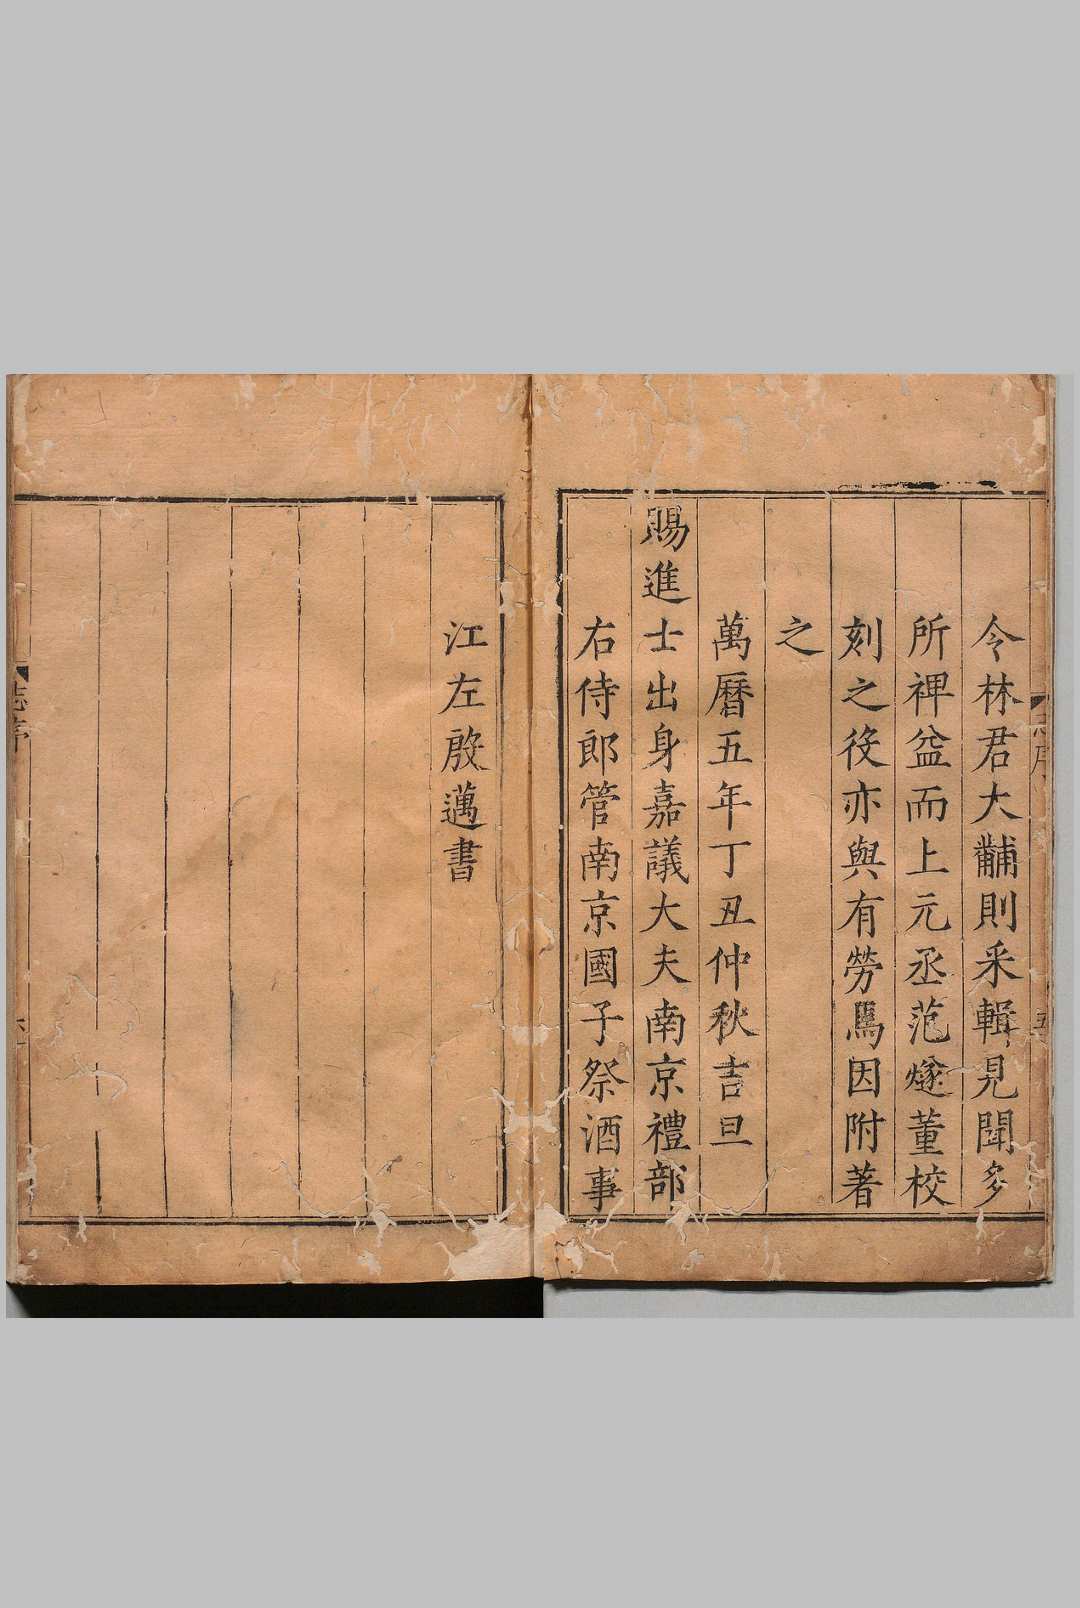 令林君大黼則采輯見聞多
所裨益而上元丞范燧董校
刻之役亦與有勞焉因附著
之
萬曆五年丁丑仲秋吉旦
賜進士出身嘉議大夫南京禮部
右侍郎管南京國子祭酒事
江左殷邁書
志序